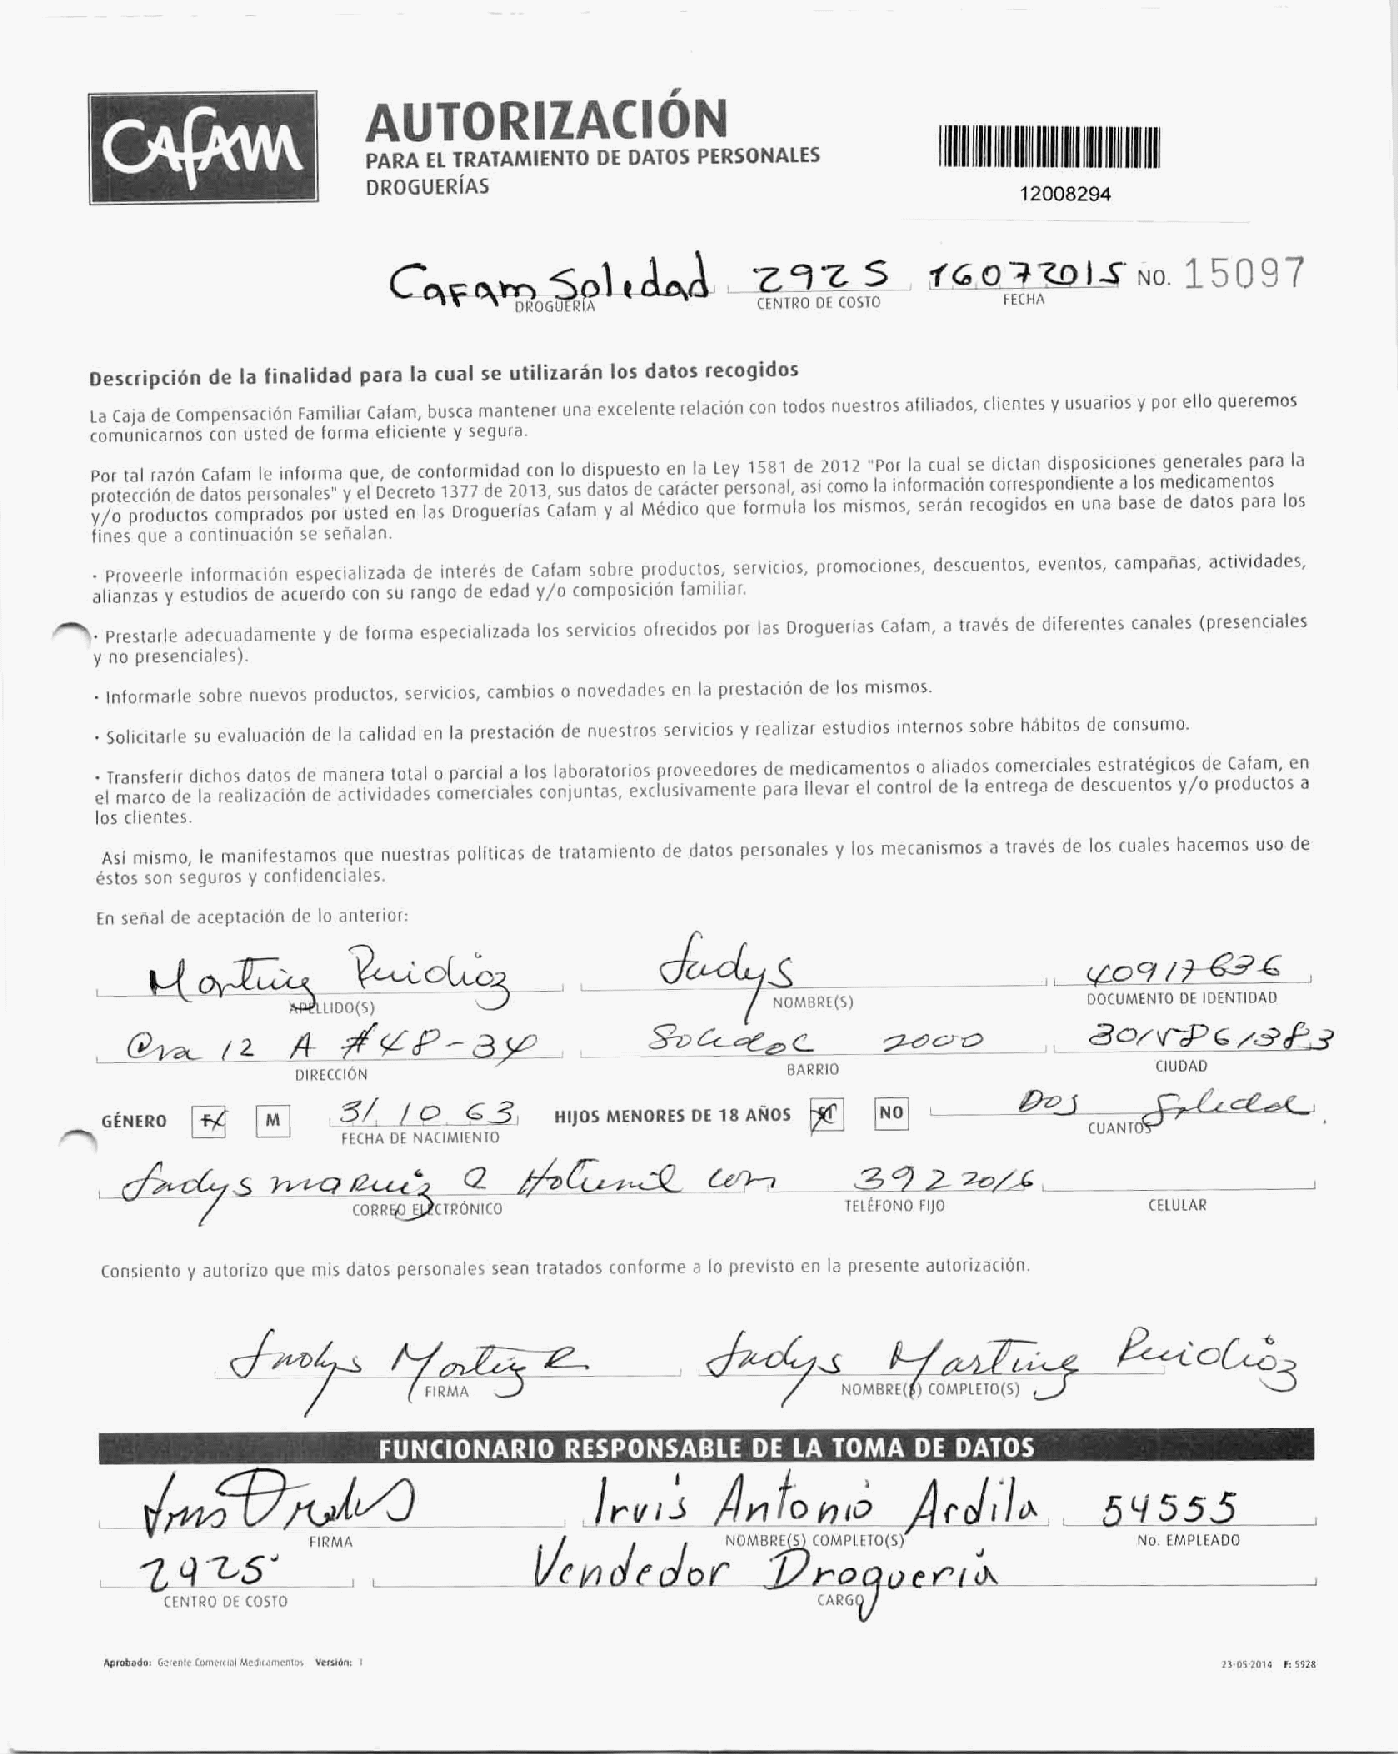 Cafam
AUTORIZACIÓN
PARA EL TRATAMIENTO DE DATOS PERSONALES
DROGUERÍAS
12008294
Cafam Soledad 2925 16072015 No. 15097
DROGUERÍA CENTRO DE COSTO FECHA
Descripción de la finalidad para la cual se utilizarán los datos recogidos
La Caja de Compensación Familiar Cafam, busca mantener una excelente relación con todos nuestros afiliados, clientes y usuarios y por ello queremos
comunicarnos con usted de forma eficiente y segura.
Por tal razón Cafam le informa que, de conformidad con lo dispuesto en la Ley 1581 de 2012 "Por la cual se dictan disposiciones generales para la
protección de datos personales" y el Decreto 1377 de 2013, sus datos de carácter personal, asi como la información correspondiente a los medicamentos
y/o productos comprados por usted en las Droguerías Cafam y al Médico que formula los mismos, serán recogidos en una base de datos para los
fines que a continuación se señalan.
· Proveerle información especializada de interés de Cafam sobre productos, servicios, promociones, descuentos, eventos, campañas, actividades,
alianzas y estudios de acuerdo con su rango de edad y/o composición familiar.
· Prestarle adecuadamente y de forma especializada los servicios ofrecidos por las Droguerías Cafam, a través de diferentes canales (presenciales
y no presenciales).
· Informarle sobre nuevos productos, servicios, cambios o novedades en la prestación de los mismos.
· Solicitarle su evaluación de la calidad en la prestación de nuestros servicios y realizar estudios internos sobre hábitos de consumo.
· Transferir dichos datos de manera total o parcial a los laboratorios proveedores de medicamentos o aliados comerciales estratégicos de Cafam, en
el marco de la realización de actividades comerciales conjuntas, exclusivamente para llevar el control de la entrega de descuentos y/o productos a
los clientes.
Asi mismo, le manifestamos que nuestras políticas de tratamiento de datos personales y los mecanismos a través de los cuales hacemos uso de
éstos son seguros y confidenciales.
En señal de aceptación de lo anterior:
Martinez Ruidiaz Judys 40917636
APELLIDO(S) NOMBRE(S) DOCUMENTO DE IDENTIDAD
Cra 12 A #48-34 Soledad 2000
DIRECCIÓN BARRIO CIUDAD
GÉNERO F M 31 10 63 HIJOS MENORES DE 18 AÑOS SI NO Dos Soledad
FECHA DE NACIMIENTO CUANTOS
3922016
CORREO ELECTRÓNICO TELÉFONO FIJO CELULAR
Consiento y autorizo que mis datos personales sean tratados conforme a lo previsto en la presente autorización.
Judys Martinez R Judys Martinez Ruidiaz
FIRMA NOMBRE(S) COMPLETO(S)
FUNCIONARIO RESPONSABLE DE LA TOMA DE DATOS
Irvis Antonio Ardila 54555
FIRMA NOMBRE(S) COMPLETO(S) No. EMPLEADO
2925 Vendedor Drogueria
CENTRO DE COSTO CARGO
Aprobado: Gerente Comercial Medicamentos Versión: 1 23-05-2014 F: 5928